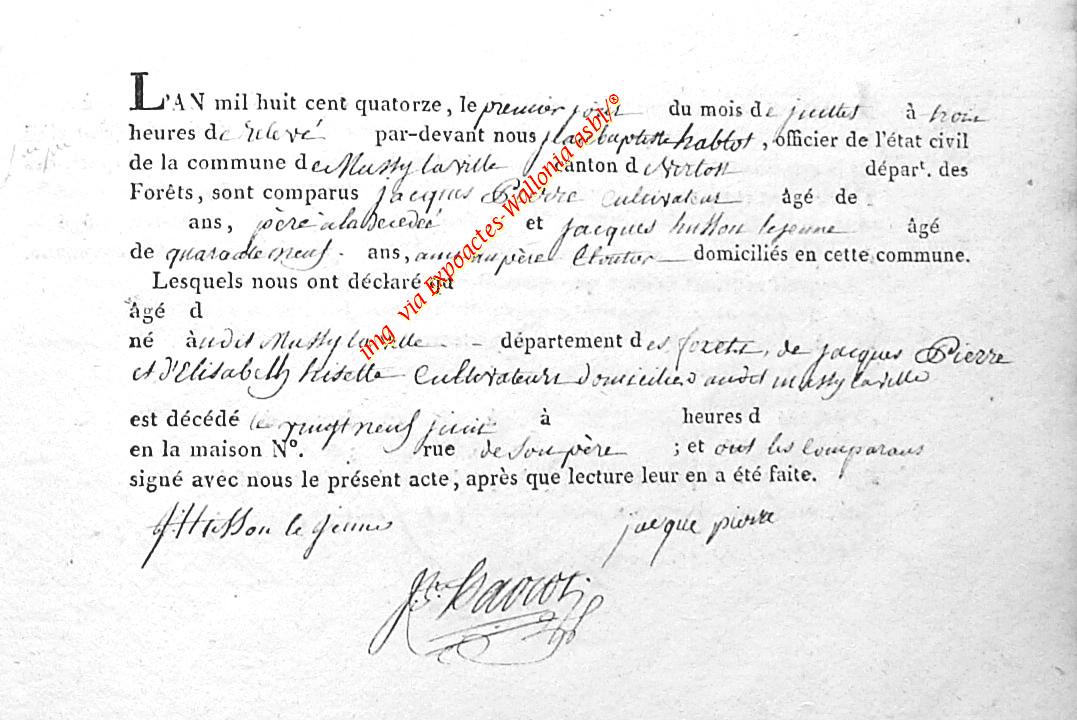 L'AN mil huit cent quatorze, le premier jour du mois de juillet à trois
heures de relevé par-devant nous jean baptiste habtot, officier de l'état civil
de la commune de Mussy la ville canton de virton départ. des
Forêts, sont comparus jacques Pierre cultivateur âgé de
ans, père a la décédée et jacques husson lejeune âgé
de quarante neuf ans, ami au père Cloutier domiciliés en cette commune.
Lesquels nous ont déclaré qu
âgé d
né audit Mussy la ville département des forets, de jacques Pierre
et d'Elisabeth Cultivateurs domiciliés audit mussy la ville
est décédé le vingt neuf juin à heures d
en la maison N°. rue de son père ; et ont les comparans
signé avec nous le présent acte, après que lecture leur en a été faite.
husson le jeune jacque pierre
img via Expoactes-Wallonia asbl/®